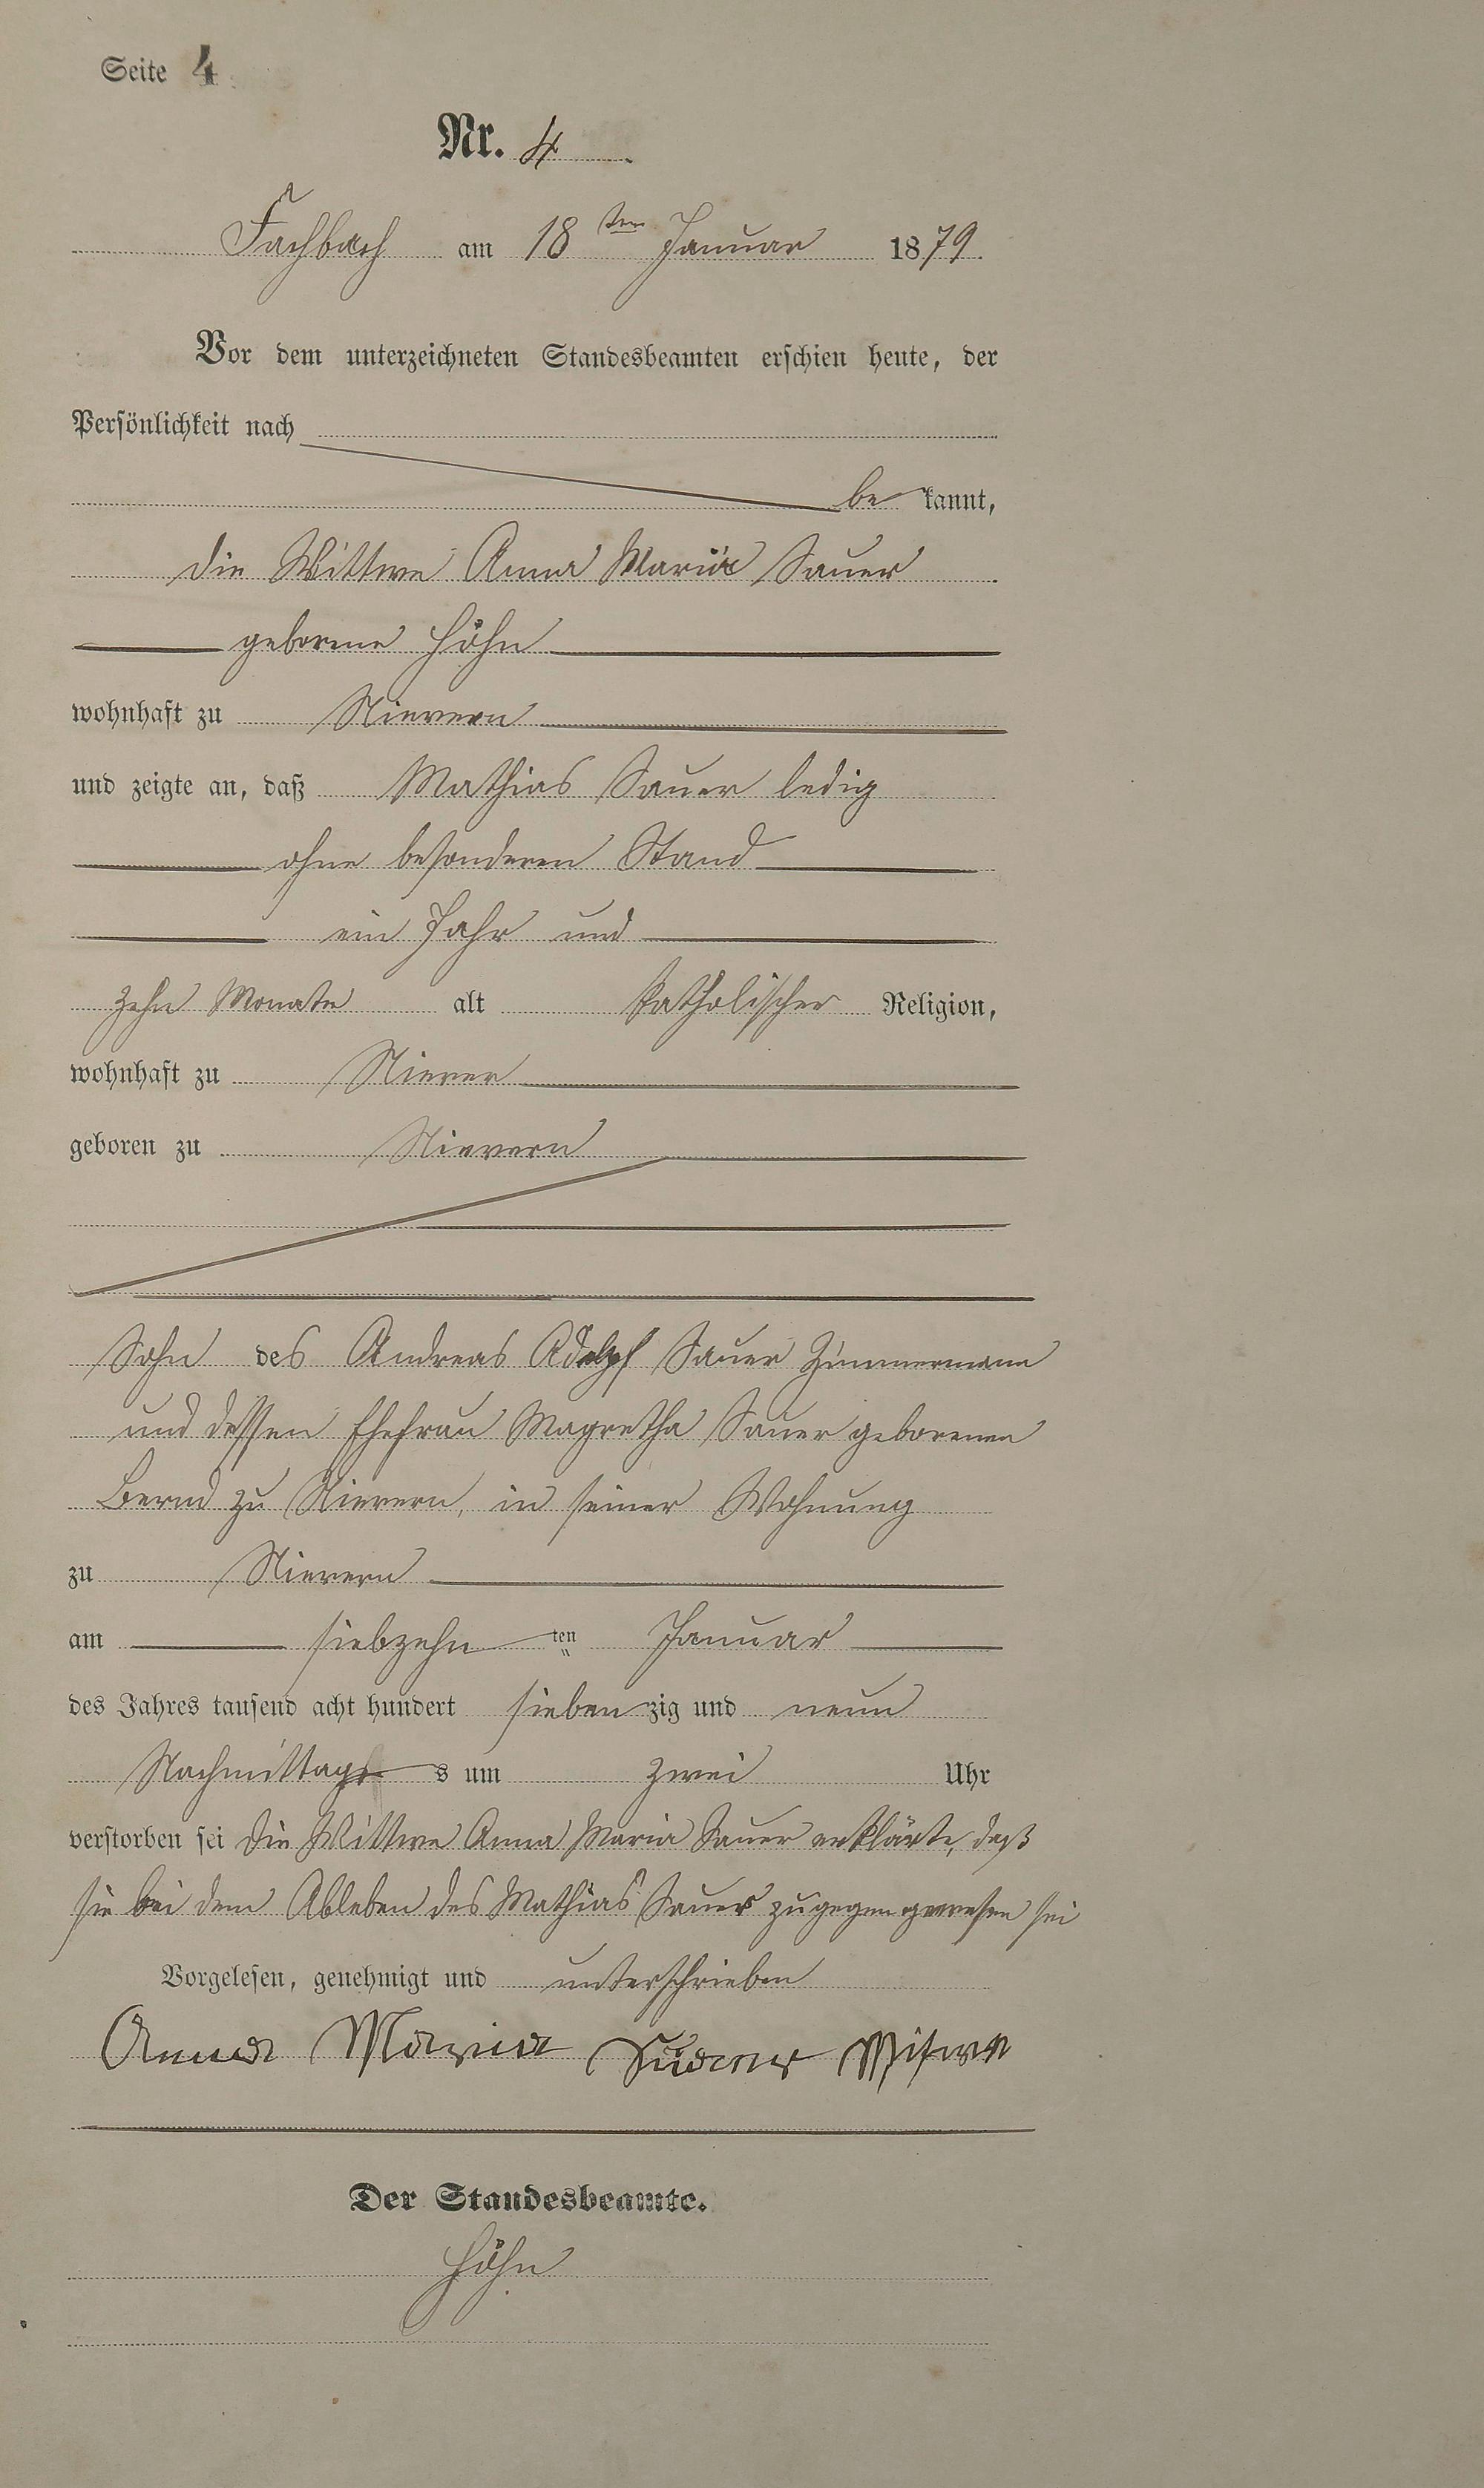 Seite 4
Nr. 4
Fachbach am 18ten Januar 1879.
Vor dem unterzeichneten Standesbeamten erschien heute, der
Persönlichkeit nach
be kannt,
die Wittwe Anna Maria Sauer
geborene Höhn
wohnhaft zu Nievern
und zeigte an, daß Mathias Sauer ledig
ohne besonderen Stand
ein Jahr und
zehn Monate alt katholischer Religion,
wohnhaft zu Niever
geboren zu Nievern
Sohn des Andreas Adolph Sauer Zimmermann
und dessen Ehefrau Magretha Sauer geborenen
Bernd zu Nievern, in seiner Wohnung
zu Nievern
am siebzehn ten Januar
des Jahres tausend acht hundert sieben zig und neun
Nachmittags s um zwei Uhr
verstorben sei die Wittwe Anna Maria Sauer erklärte, daß
sie bei dem Ableben des Mathias Sauer zugegen gewesen sei
Vorgelesen, genehmigt und unterschrieben
Anna Maria Witwe
Der Standesbeamte.
Höhn